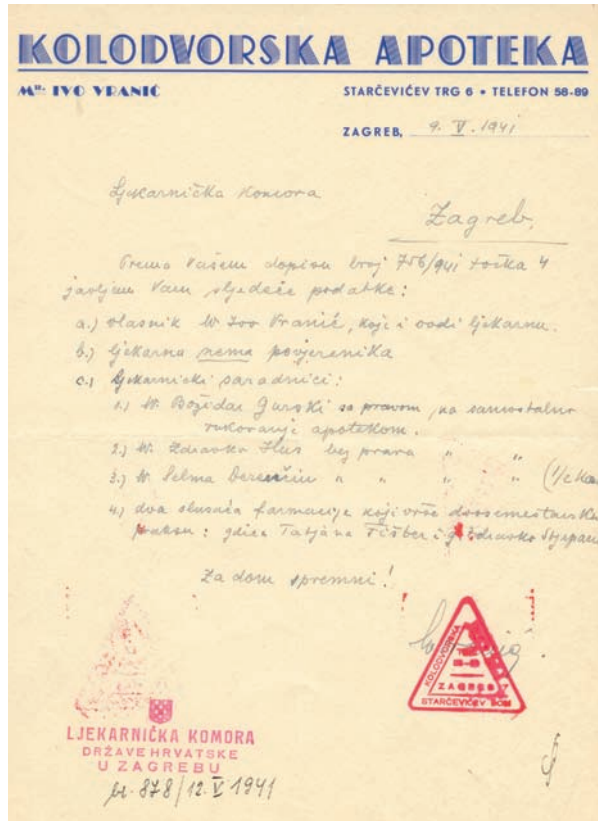 KOLODVORSKA APOTEKA
Mr. IVO VRANIĆ
STARČEVIĆEV TRG 6 • TELEFON 58-89
ZAGREB, 9. V. 1941
Ljekarnička Komora
Zagreb,
Prema Vašem dopisu broj 756/941 točka 4
javljam Vam sljedeće podatke:
a.) vlasnik Mr Ivo Vranić, koji i vodi ljekarnu.
b.) ljekarna nema povjerenika
c.) Ljekarnički saradnici:
1.) Mr. Božidar Gurski sa pravom na samostalno
rukovanje apotekom.
2.) Mr. Zdravko Hus bez prava " "
3.) Mr Selma Derenčin " " " "
4.) dva slušača farmacije koji vrše dvosemestarsku
praksu: gdica Tatjana Fišber i Zdravko Stjepan
Za dom spremni!
KOLODVORSKA
ZAGREB
STARČEVIĆEV DOM
LJEKARNIČKA KOMORA
DRŽAVE HRVATSKE
U ZAGREBU
br. 878/12. V 1941